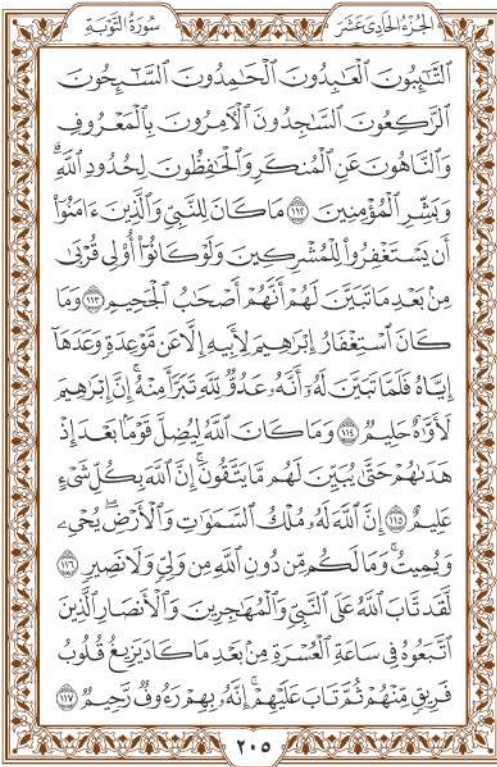 الجُزْءُ الحَادِي عَشَرَ سُورَةُ التَّوْبَةِ
ٱلتَّـٰٓئِبُونَ ٱلْعَـٰبِدُونَ ٱلْحَـٰمِدُونَ ٱلسَّـٰٓئِحُونَ
ٱلرَّٰكِعُونَ ٱلسَّـٰجِدُونَ ٱلْـَٔامِرُونَ بِٱلْمَعْرُوفِ
وَٱلنَّاهُونَ عَنِ ٱلْمُنكَرِ وَٱلْحَـٰفِظُونَ لِحُدُودِ ٱللَّهِۗ
وَبَشِّرِ ٱلْمُؤْمِنِينَ ١١٢ مَا كَانَ لِلنَّبِيِّ وَٱلَّذِينَ ءَامَنُوٓا۟
أَن يَسْتَغْفِرُوا۟ لِلْمُشْرِكِينَ وَلَوْ كَانُوٓا۟ أُو۟لِى قُرْبَىٰ
مِنۢ بَعْدِ مَا تَبَيَّنَ لَهُمْ أَنَّهُمْ أَصْحَـٰبُ ٱلْجَحِيمِ ١١٣ وَمَا
كَانَ ٱسْتِغْفَارُ إِبْرَٰهِيمَ لِأَبِيهِ إِلَّا عَن مَّوْعِدَةٍ وَعَدَهَآ
إِيَّاهُ فَلَمَّا تَبَيَّنَ لَهُۥٓ أَنَّهُۥ عَدُوٌّ لِّلَّهِ تَبَرَّأَ مِنْهُۚ إِنَّ إِبْرَٰهِيمَ
لَأَوَّٰهٌ حَلِيمٌ ١١٤ وَمَا كَانَ ٱللَّهُ لِيُضِلَّ قَوْمًۢا بَعْدَ إِذْ
هَدَىٰهُمْ حَتَّىٰ يُبَيِّنَ لَهُم مَّا يَتَّقُونَۚ إِنَّ ٱللَّهَ بِكُلِّ شَىْءٍ
عَلِيمٌ ١١٥ إِنَّ ٱللَّهَ لَهُۥ مُلْكُ ٱلسَّمَـٰوَٰتِ وَٱلْأَرْضِۖ يُحْىِۦ
وَيُمِيتُۚ وَمَا لَكُم مِّن دُونِ ٱللَّهِ مِن وَلِىٍّ وَلَا نَصِيرٍ ١١٦
لَّقَد تَّابَ ٱللَّهُ عَلَى ٱلنَّبِىِّ وَٱلْمُهَـٰجِرِينَ وَٱلْأَنصَارِ ٱلَّذِينَ
ٱتَّبَعُوهُ فِى سَاعَةِ ٱلْعُسْرَةِ مِنۢ بَعْدِ مَا كَادَ يَزِيغُ قُلُوبُ
فَرِيقٍ مِّنْهُمْ ثُمَّ تَابَ عَلَيْهِمْۚ إِنَّهُۥ بِهِمْ رَءُوفٌ رَّحِيمٌ ١١٧
٢٠٥